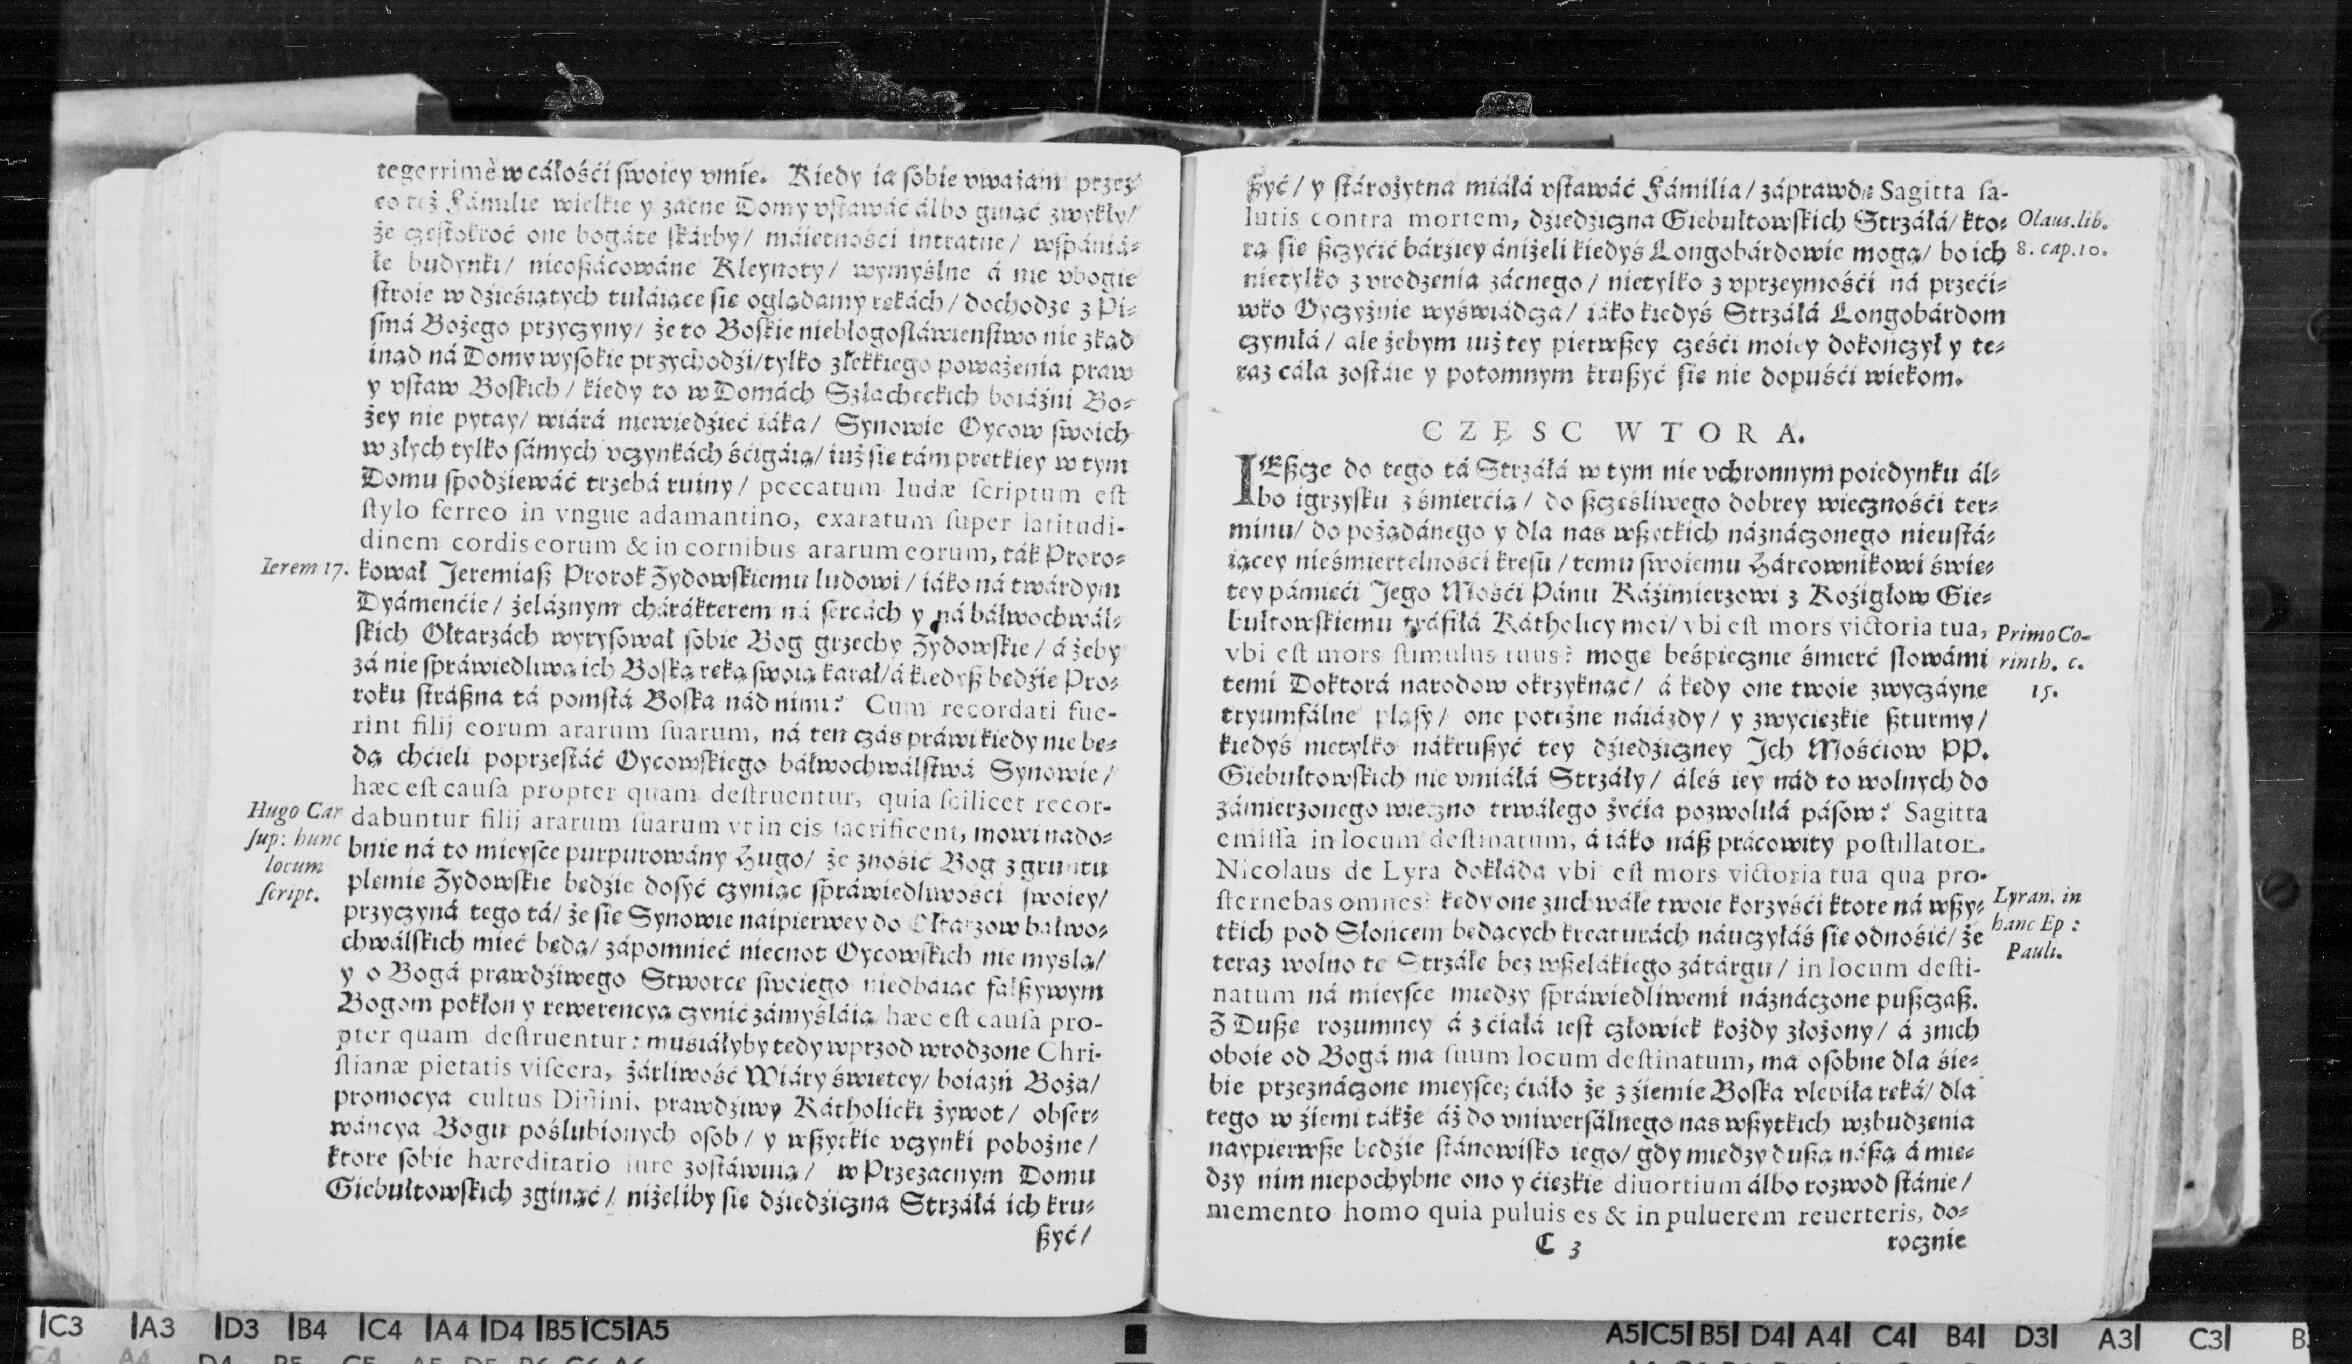 tegerrimè w cáłośći swoiey vmie. Kiedy ia sobie vważam przez
co też Fámilie wielkie y zacne Domy vstawáć álbo ginąć zwykły/
że częstokroć one bogáte skárby/ máiętnośći intratne/ wspániá-
łe budynki/ nieoszácowáne Kleynoty/ wymyślne á nie vbogie
stroie w dźieśiątych tułáiące się oglądamy rękách/ dochodzę z Pi-
smá Bożego przyczyny/ że to Boskie niebłogosłáwieństwo nie zkąd
inąd ná Domy wysokie przychodźi/ tylko z lekkiego poważenia praw
y vstaw Boskich/ kiedy to w Domách Szlacheckich boiáźni Bo-
żey nie pytay/ wiárá niewiedźieć iáka/ Synowie Oycow swoich
w złych tylko sámych vczynkách śćigáią/ iuż się tám prętkiey w tym
Domu spodźiewáć trzebá ruiny/ peccatum Iudæ scriptum est
stylo ferreo in vngue adamantino, exaratum super latitudi-
dinem cordis eorum & in cornibus ararum eorum, ták Proro-
Ierem 17.
kował Jeremiasz Prorok Zydowskiemu ludowi/ iáko ná twárdym
Dyámenćie/ żeláznym chárákterem ná sercách y ná báłwochwál-
skich Ołtarzách wyrysował sobie Bog grzechy Zydowskie/ á żeby
zá nie spráwiedliwą ich Boską ręką swoią karał/ á kiedysz będźie Pro-
roku strászna tá pomstá Boska nád nimi? Cum recordati fue-
rint filij eorum ararum suarum, ná ten czás práwi kiedy nie bę-
dą chćieli poprzestáć Oycowskiego báłwochwálstwá Synowie/
hæc est causa propter quam destruentur, quia scilicet recor-
Hugo Car
sup: hunc
locum
script.
dabuntur filij ararum suarum vt in eis sacrificent, mowi nado-
bnie ná to mieysce purpurowány Hugo/ że znośić Bog z gruntu
plemie Zydowskie będźie dosyć czyniąc spráwiedliwośći swoiey/
przyczyná tego tá/ że się Synowie naipierwey do Ołtarzow bałwo-
chwálskich mieć będą/ zápomnieć niecnot Oycowskich nie myslą/
y o Bogá prawdźiwego Stworcę swoiego niedbáiąc fałszywym
Bogom pokłon y rewerencyą czynić zámyśláią hæc est causa pro-
pter quam destruentur: musiáłyby tedy wprzod wrodzone Chri-
stianæ pietatis viscera, żárliwość Wiáry świętey/ boiaźń Boża/
promocya cultus Diuini, prawdźiwy Kátholicki żywot/ obser-
wáncya Bogu poślubionych osob/ y wszytkie vczynki pobożne/
ktore sobie hæreditario iure zostáwuią/ w Przezacnym Domu
Giebułtowskich zginąć/ niżeliby się dźiedźiczna Strzáłá ich kru-
szyć/
szyć/ y stárożytna miáłá vstawáć Fámilia/ záprawdę Sagitta sa-
lutis contra mortem, dźiedźiczna Giebułtowskich Strzáłá/ kto-
Olaus. lib.
8. cap. 10.
ra się szczyćić bárźiey ániżeli kiedyś Longobárdowie mogą/ bo ich
nietylko z vrodzenia zácnego/ nietylko z vprzeymośći ná przeći-
wko Oyczyźnie wyświádcza/ iáko kiedyś Strzáłá Longobárdom
czyniłá/ ale żebym iuż tey pierwszey częśći moiey dokończył y te-
raz cáła zostáie y potomnym kruszyć się nie dopuśći wiekom.
CZĘSC WTORA.
IEszcze do tego tá Strzáłá w tym nie vchronnym poiedynku ál-
bo igrzysku z śmierćią/ do szczęśliwego dobrey wiecznośći ter-
minu/ do pożądánego y dla nas wszetkich náznáczonego nieustá-
iącey nieśmiertelnośći kresu/ temu swoiemu Hárcownikowi świę-
tey pámięći Jego Mośći Pánu Káźimierzowi z Koźigłow Gie-
bułtowskiemu tráfiłá Kátholicy moi/ vbi est mors victoria tua,
Primo Co-
rinth. c.
15.
vbi est mors stimulus tuus? mogę beśpiecznie śmierć słowámi
temi Doktorá narodow okrzyknąć/ á kędy one twoie zwyczáyne
tryumfálne pląsy/ one potężne náiázdy/ y zwyćięzkie szturmy/
kiedyś nietylko nákruszyć tey dźiedźiczney Ich Mośćiow PP.
Giebułtowskich nie vmiáłá Strzáły/ áleś iey nád to wolnych do
zámierzonego wieczno trwáłego żyćia pozwoliłá pásow? Sagitta
emissa in locum destinatum, á iáko náß prácowity postillator.
Nicolaus de Lyra dokłáda vbi est mors victoria tua qua pro-
Lyran. in
hanc Ep:
Pauli.
sternebas omnes? kędy one zuchwáłe twoie korzyśći ktore ná wszy-
tkich pod Słońcem będących kreaturách náuczyłáś się odnośić/ że
teraz wolno tę Strzáłę bez wszelákiego zátárgu/ in locum desti-
natum ná mieysce między spráwiedliwemi náznáczone puszczasz.
Z Dusze rozumney á z ćiałá iest człowiek kożdy złożony/ á z nich
oboie od Bogá ma suum locum destinatum, ma osobne dla śie-
bie przeznáczone mieysce; ćiáło że z źiemie Boska vlepiła ręká/ dla
tego w źiemi tákże áż do vniwersálnego nas wszytkich wzbudzenia
naypierwsze będźie stánowisko iego/ gdy między duszą nászą á mię-
dzy nim niepochybne ono y ćięzkie diuortium álbo rozwod stánie/
memento homo quia puluis es & in puluerem reuerteris, do-
C 3
rocznie
C3 A3 D3 B4 C4 A4 D4 B5 C5 A5
A5 C5 B5 D4 A4 C4 B4 D3 A3 C3 B